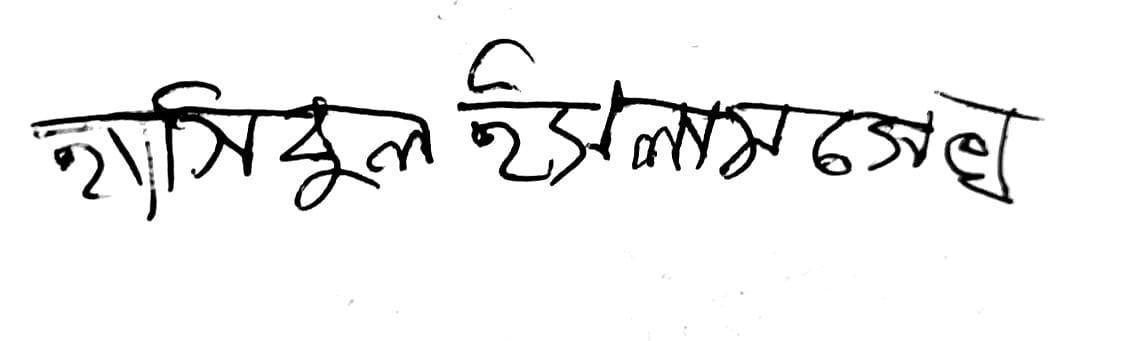 হামিদুল ইসলাম সেখ